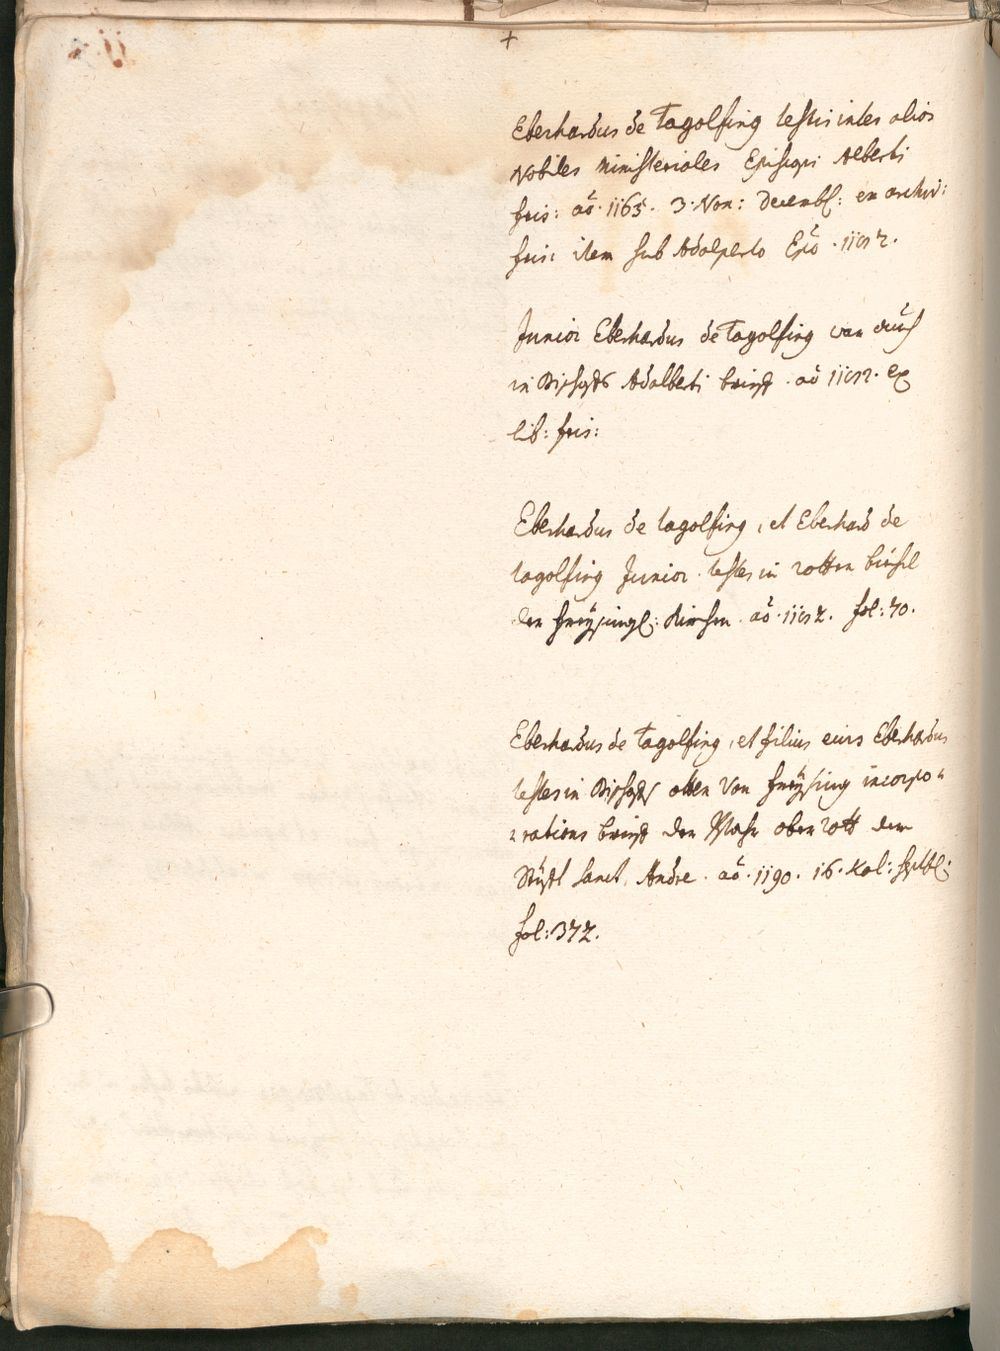 +
Eberhardus de Tagolfing testis inter alios
Nobiles Ministeriales Episcopi Alberti
fris: aõ. 1165. 3. Non: Decembl: ex archiv:
fris: item sub Adalperto Epõ .
Junior Eberhardus de Tagolfing war auch
in Bischoffs Adalberti brieff . aõ ex
lib: fris:
Eberhardus de tagolfing, et Eberhard de
tagolfing Junior . testes in rotten büechl
der freÿsingl: Kirchen . aõ . fol: 70.
Eberhardus de Tagolfing, et filius eius Eberhardus
testes in Bischoffs otten Von freÿsing incorpo=
rations brieff der Pfahr ober rott dem
Stüfft sanct. Andre . aõ . 1190. 16. Kal: septbl:
fol: 372.